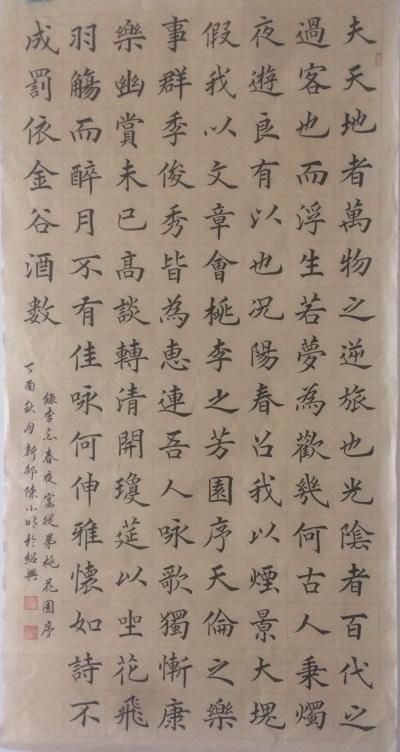 夫天地者萬物之逆旅也光陰者百代之
過客也而浮生若夢為歡幾何古人秉燭
夜遊良有以也况陽春召我以煙景大塊
假我以文章會桃李之芳園序天倫之樂
事群季俊秀皆為恵連吾人咏歌獨慚康
樂幽賞未已高談轉清開瓊筵以坐花飛
羽觴而醉月不有佳咏何伸雅懷如詩不
成罰依金谷酒数
錄李白春夜宴從弟桃花園序
丁酉秋月新邨陳小明於紹興